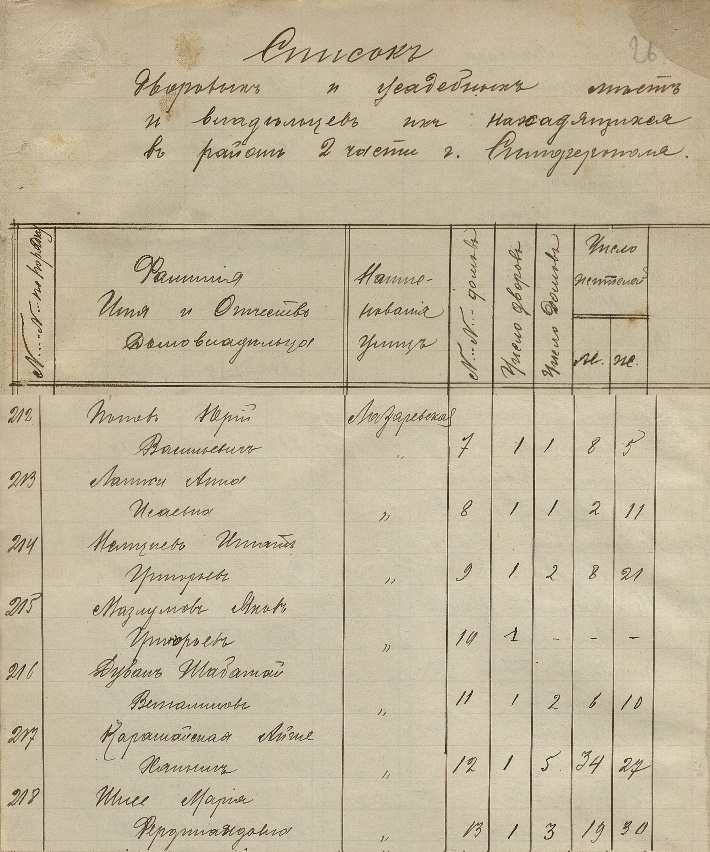 26
Списокъ
дворовыхъ и усадебныхъ мѣстъ
и владѣльцевъ ихъ находящихся
въ районѣ 2 части г. Симферополя.
№№ по порядку
Фамилія
Имя и Отчество
Домовладѣльца
Наиме-
нованія
Улицъ
№№ домовъ
Число дворовъ
Число Домовъ
Число
жителей
м. ж.
212 Поповъ Юрій Лазаревская
Васильевичъ „ 7 1 1 8 5
213 Анна
Исаевна „ 8 1 1 2 11
214 Игнатъ
Григорьев „ 9 1 2 8 21
215 Мазлумовъ Яковъ
Григорьевъ „ 10 1 - - -
216 Дуванъ Шабатай
„ 11 1 2 6 10
217 Карашайская Айше
Ханымъ „ 12 1 5 34 27
218 Шлее Марія
Фердинандовна „ 13 1 3 19 30